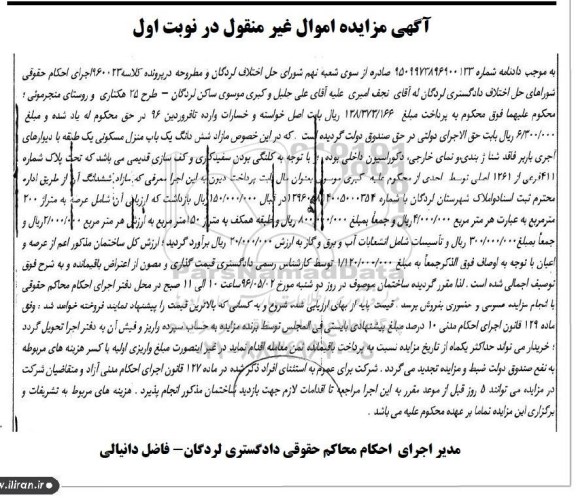 آگهی مزایده اموال غیر منقول در نوبت اول
به موجب دادنامه شماره ۹۵۰۹۹۷۳۸۹۶۹۰۰۱۳۳ صادره از سوی شعبه نهم شورای حل اختلاف لردگان و مطروحه درپرونده کلاسه ۹۶۰۰۲۳اجرای احکام حقوقی
شوراهای حل اختلاف دادگستری لردگان له آقای نجف امیری علیه آقای علی جلیل و کبری موسوی ساکن لردگان – طرح ۲۵ هکتاری و روستای منجرموئی ؛
محکوم علیهما فوق محکوم به پرداخت مبلغ ۱۲۸/۳۷۳/۱۶۶ ریال بابت اصل خواسته و خسارات وارده تافروردین ۹۶ در حق محکوم له یاد شده و مبلغ
۶/۳۰۰/۰۰۰ ریال بابت حق الاجرای دولتی در حق صندوق دولت گردیده است . که در این خصوص مازاد شش دانگ یک باب منزل مسکونی یک طبقه با دیوارهای
آجری باربر فاقد شنا ژ بندی‌و نمای خارجی، دکوراسیون داخلی بوده و با توجه به کلنگی بودن سفیدکاری و کف سازی قدیمی می باشد که تحت پلاک شماره
۴۱۱فرعی از ۱۲۶۱ اصلی توسط احدی از محکوم علیه کبری موسوی بعنوان مال بابت پرداخت دیون به این اجرا معرفی که مازاد ششدانگ آن از طریق اداره
محترم ثبت اسنادواملاک شهرستان لردگان با شماره در قبال ۱۵۰/۰۰۰/۰۰۰ریال بازداشت که ارزیابی آن شامل عرصه به متراژ ۲۰۰
مترمربع به عبارت هر متر مربع ۴/۰۰۰/۰۰۰ریال و جمعاً بمبلغ ۸۰۰/۰۰۰/۰۰۰ ریال و طبقه همکف به متراژ ۱۵۰متر مربع به ارزش هر متر مربع ۲/۰۰۰/۰۰۰ریال و
جمعاً بمبلغ ۳۰۰/۰۰۰/۰۰۰ریال و تأسیسات شامل انشعابات آب و برق و گاز به ارزش ۲۰/۰۰۰/۰۰۰ ریال برآورد گردید؛ ارزش کل ساختمان مذکور اعم از عرصه و
اعیان با توجه به اوصاف فوق الذکرجمعاً به مبلغ ۱/۱۲۰/۰۰۰/۰۰۰ ریال توسط کارشناس رسمی دادگستری قیمت گذاری و مصون از اعتراض باقیمانده و به شرح فوق
توصیف اجمالی شده است . لذا مقرر گردیده ساختمان موصوف در روز دو شنبه مورخ ۹۶/۰۵/۰۲ساعت ۱۰ الی ۱۱ صبح در محل دفتر اجرای احکام محاکم حقوقی
با انجام مزایده عمومی و حضوری بفروش برسد . قیمت پایه از بهای ارزیابی شده شروع و به کسانی که بالاترین قیمت را پیشنهاد نمایند فروخته خواهد شد ، وفق
ماده ۱۲۹ قانون اجرای احکام مدنی ۱۰ درصد مبلغ پیشنهادی بایستی فی المجلس توسط برنده مزایده به حساب سپرده واریز و فیش آن به دفتر اجرا تحویل گردد
؛ خریدار می تواند حداکثر یکماه از تاریخ مزایده نسبت به پرداخت باقیمانده ثمن معامله اقدام نماید در غیر اینصورت مبلغ واریزی اولیه با کسر هزینه های مربوطه
به نفع صندوق دولت ضبط و مزایده تجدید می گردد . شرکت برای عموم به استثنای افراد ذکر شده در ماده ۱۲۷ قانون اجرای احکام مدنی آزاد و متقاضیان شرکت
در مزایده می توانند ۵ روز قبل از موعد مقرر به این اجرا مراجعه تا اقدامات لازم جهت بازدید ساختمان مذکور انجام پذیرد . هزینه های مربوط به تشریفات و
برگزاری این مزایده تماما بر عهده محکوم علیه می باشد .
مدیر اجرای احکام محاکم حقوقی دادگستری لردگان– فاضل دانیالی
ParsNamadData
www.iliran.ir